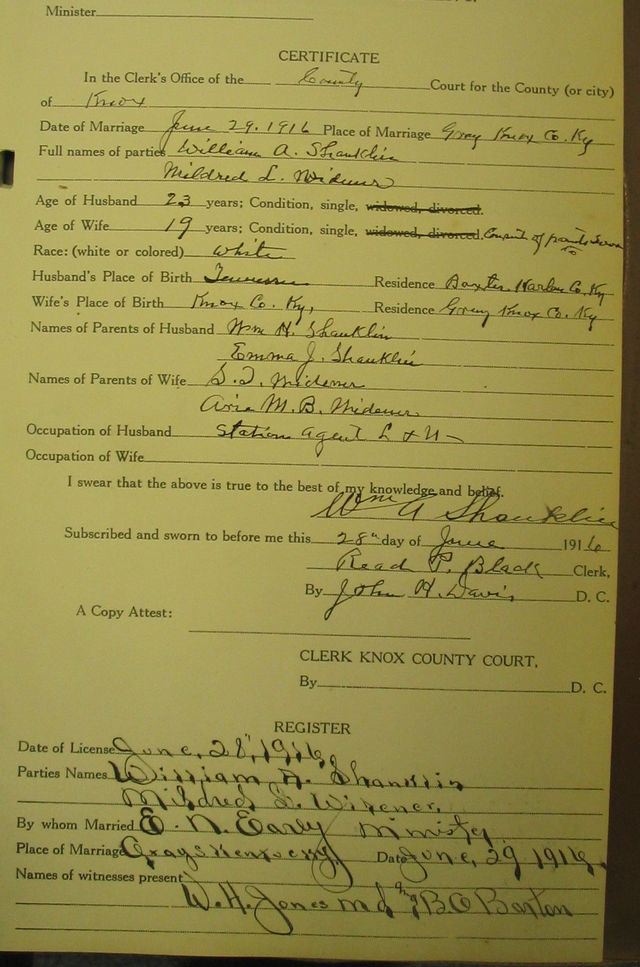 Minister
CERTIFICATE
In the Clerk's Office of the County Court for the County (or city)
of Knox
Date of Marriage June 29. 1916 Place of Marriage Gray Knox Co. Ky
Full names of parties William A. Shanklin
Mildred L. Widener
Age of Husband 23 years; Condition, single, widowed, divorced.
Age of Wife 19 years; Condition, single, widowed, divorced. Consent of parents sworn to
Race: (white or colored) white
Husband's Place of Birth Tennessee Residence Baxter Harlan Co. Ky
Wife's Place of Birth Knox Co. Ky, Residence Gray Knox Co. Ky
Names of Parents of Husband Wm H. Shanklin
Emma J. Shanklin
Names of Parents of Wife Widener
M. B. Widener
Occupation of Husband Station agent L & N
Occupation of Wife
I swear that the above is true to the best of my knowledge and belief.
Wm A Shanklin
Subscribed and sworn to before me this 28th day of June 1916
Read P. Black Clerk,
By John H. Davis D. C.
A Copy Attest:
CLERK KNOX COUNTY COURT,
By D. C.
REGISTER
Date of License June, 28, 1916,
Parties Names William A. Shanklin
Mildred L. Widener,
By whom Married E. N. Early Minister
Place of Marriage Grays Kentucky, Date June, 29 1916,
Names of witnesses present
W. H. Jones md B O Barton